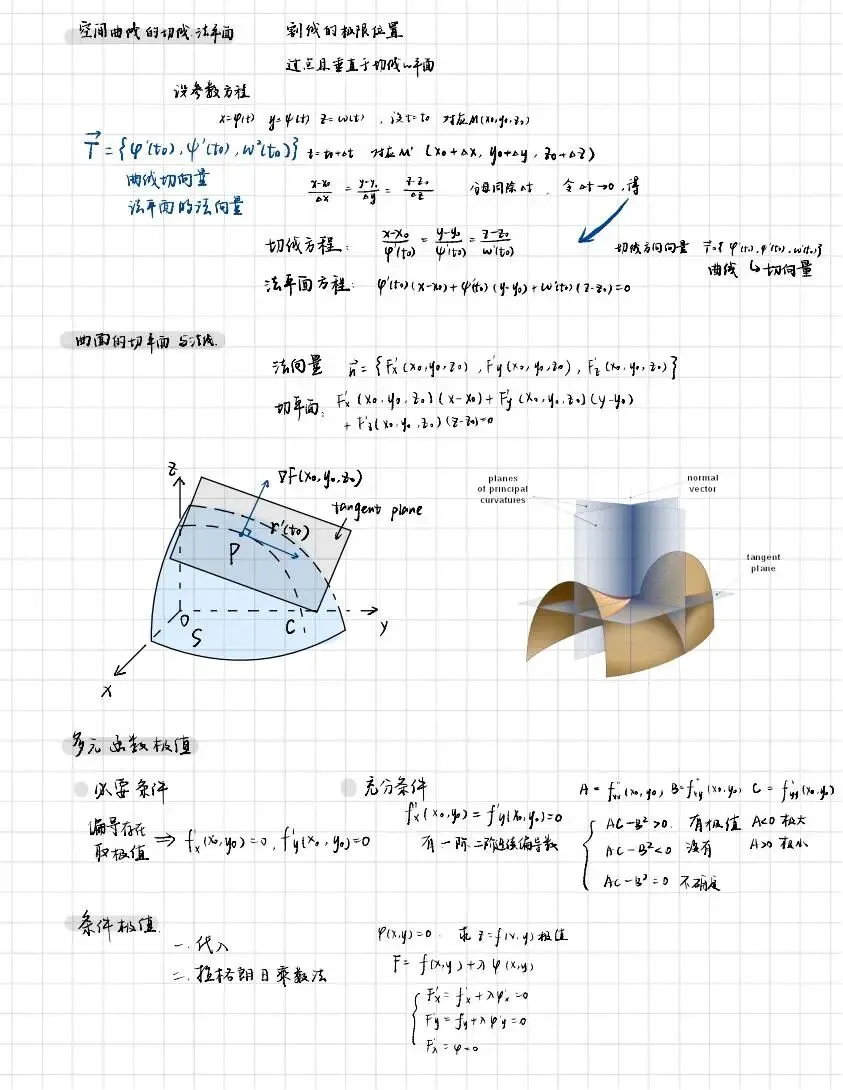 空间曲线的切线.法平面 割线的极限位置
过点且垂直于切线的平面
设参数方程
x=φ(t) y=ψ(t) z=w(t) , 设t=t₀ 对应M(x₀,y₀,z₀)
T⃗={φ'(t₀),ψ'(t₀),w'(t₀)} t=t₀+Δt 对应M' (x₀+Δx, y₀+Δy, z₀+Δz)
曲线切向量
法平面的法向量
(x-x₀)/Δx = (y-y₀)/Δy = (z-z₀)/Δz 分母同除Δt , 令Δt→0 ,得
切线方程: (x-x₀)/φ'(t₀) = (y-y₀)/ψ'(t₀) = (z-z₀)/w'(t₀)
切线方向向量 T⃗={φ'(t₀),ψ'(t₀),w'(t₀)}
曲线 ↳切向量
法平面方程: φ'(t₀)(x-x₀)+ψ'(t₀)(y-y₀)+w'(t₀)(z-z₀)=0
曲面的切平面与法线.
法向量 n⃗={F'x(x₀,y₀,z₀),F'y(x₀,y₀,z₀),F'z(x₀,y₀,z₀)}
切平面: F'x(x₀,y₀,z₀)(x-x₀)+F'y(x₀,y₀,z₀)(y-y₀)
+F'z(x₀,y₀,z₀)(z-z₀)=0
z
∇F(x₀,y₀,z₀)
tangent plane
r'(t₀)
P
O
S
C
y
x
planes
of principal
curvatures
normal
vector
tangent
plane
多元函数极值
必要条件
偏导存在
取极值 ⇒ f'x(x₀,y₀)=0, f'y(x₀,y₀)=0
充分条件
f'x(x₀,y₀)=f'y(x₀,y₀)=0
有一阶.二阶连续偏导数
A=f''xx(x₀,y₀) B=f''xy(x₀,y₀) C=f''yy(x₀,y₀)
AC-B²>0 有极值 A<0 极大
AC-B²<0 没有 A>0 极小
AC-B²=0 不确定
条件极值.
一. 代入
二. 拉格朗日乘数法
φ(x,y)=0. 求z=f(x,y)极值
F=f(x,y)+λφ(x,y)
F'x=f'x+λφ'x=0
F'y=f'y+λφ'y=0
F'λ=φ=0